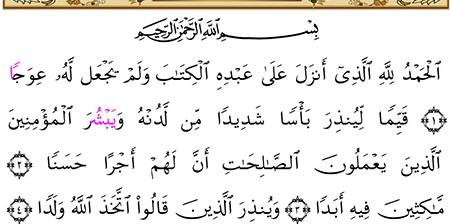 بِسْمِ ٱللَّهِ ٱلرَّحْمَٰنِ ٱلرَّحِيمِ
ٱلْحَمْدُ لِلَّهِ ٱلَّذِىٓ أَنزَلَ عَلَىٰ عَبْدِهِ ٱلْكِتَٰبَ وَلَمْ يَجْعَل لَّهُۥ عِوَجًا
﴿١﴾ قَيِّمًا لِّيُنذِرَ بَأْسًا شَدِيدًا مِّن لَّدُنْهُ وَيَبْشُرَ ٱلْمُؤْمِنِينَ
ٱلَّذِينَ يَعْمَلُونَ ٱلصَّٰلِحَٰتِ أَنَّ لَهُمْ أَجْرًا حَسَنًا ﴿٢﴾
مَّٰكِثِينَ فِيهِ أَبَدًا ﴿٣﴾ وَيُنذِرَ ٱلَّذِينَ قَالُوا۟ ٱتَّخَذَ ٱللَّهُ وَلَدًا ﴿٤﴾